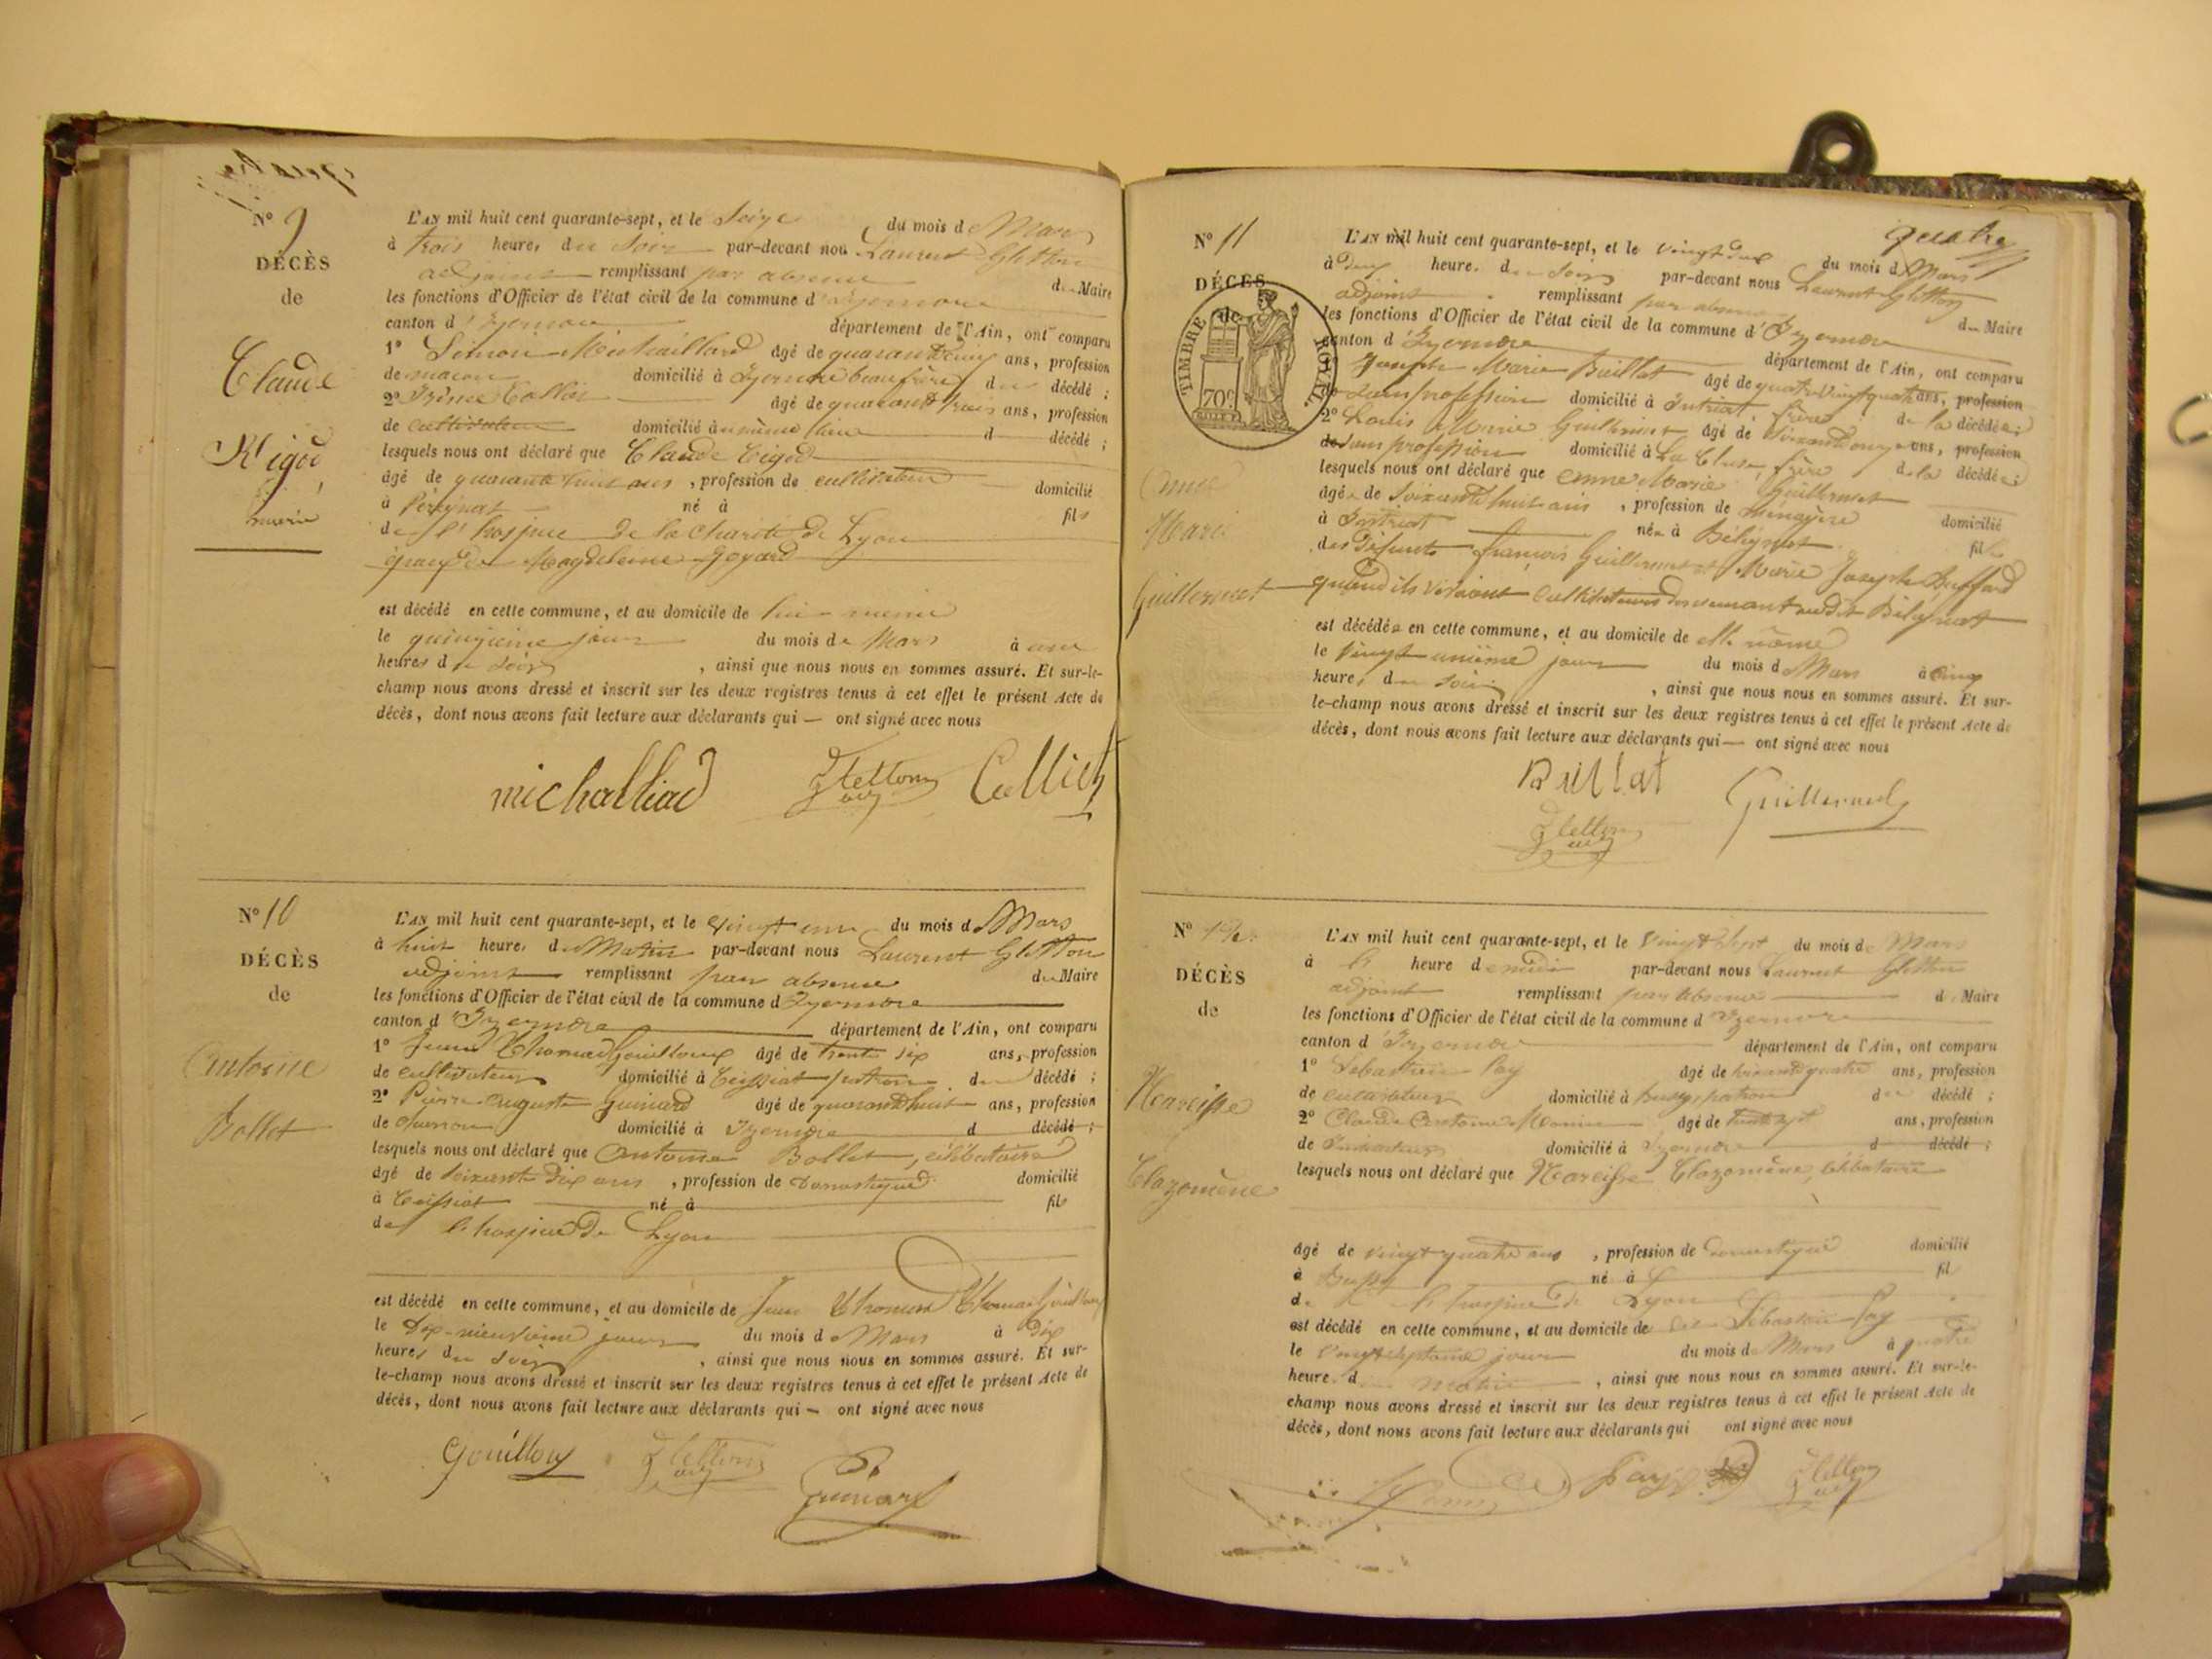 N° 9
DÉCÈS
de
Claude
Rigod
marié
L'AN mil huit cent quarante-sept, et le Seize du mois de Mars
à trois heures du Soir par-devant nous Laurent Gletton
adjoint remplissant par absence du Maire
les fonctions d'Officier de l'état civil de la commune d'Izernore
canton d'Izernore département de l'Ain, ont comparu
1° Simon Michaillard âgé de quarante cinq ans, profession
de maçon domicilié à Izernore beaufrère du décédé ;
2° Collet âgé de quarante trois ans, profession
de cultivateur domicilié au même lieu d décédé ;
lesquels nous ont déclaré que Claude Rigod
âgé de quarante huit ans , profession de cultivateur domicilié
à Pérignat né à fils
de l'hospice de la Charité de Lyon
époux de Magdeleine Goyard
est décédé en cette commune, et au domicile de lui-même
le quinzième jour du mois de Mars à une
heures du Soir , ainsi que nous nous en sommes assuré. Et sur-le-
champ nous avons dressé et inscrit sur les deux registres tenus à cet effet le présent Acte de
décès, dont nous avons fait lecture aux déclarants qui — ont signé avec nous
michalliad Gletton adj Collet
N° 10
DÉCÈS
de
Antoine
Bollet
L'AN mil huit cent quarante-sept, et le vingt un du mois de Mars
à huit heures du Matin par-devant nous Laurent Gletton
adjoint remplissant par absence du Maire
les fonctions d'Officier de l'état civil de la commune d'Izernore
canton d'Izernore département de l'Ain, ont comparu
1° Jean Thomas Gouilloux âgé de trente six ans, profession
de cultivateur domicilié à Ceissiat patron du décédé ;
2° Pierre auguste guinard âgé de quarante huit ans, profession
de domicilié à Izernore d décédé ;
lesquels nous ont déclaré que Antoine Bollet, célibataire
âgé de soixante dix ans , profession de Domestique domicilié
à Ceissiat né à fils
de l'hospice de Lyon
est décédé en cette commune, et au domicile de Jean Thomas Gouilloux
le dix-neuvième jour du mois de Mars à dix
heures du Soir , ainsi que nous nous en sommes assuré. Et sur-
le-champ nous avons dressé et inscrit sur les deux registres tenus à cet effet le présent Acte de
décès, dont nous avons fait lecture aux déclarants qui — ont signé avec nous
Gouilloux Gletton adj Guinard
quatre
N° 11
DÉCES
de
TIMBRE ROYAL
70c
Anne
Marie
Guillermet
L'AN mil huit cent quarante-sept, et le vingt deux du mois de Mars
à deux heures du Soir par-devant nous Laurent Gletton
adjoint remplissant par absence du Maire
les fonctions d'Officier de l'état civil de la commune d'Izernore
canton d'Izernore département de l'Ain, ont comparu
1° Joseph Marie Buillat âgé de quatrevingt quatre ans, profession
de sans profession domicilié à Intriat de la décédée ;
2° Louis Marie Guillermet âgé de soixante onze ans, profession
de sans profession domicilié à La Cluse, frère de la décédée ;
lesquels nous ont déclaré que Anne Marie Guillermet
âgée de soixante huit ans , profession de ménagère domicilié
à Intriat née à Béligniat fille
des défunts françois Guillermet et Marie Josephe Buffard
quand ils vivaient cultivateurs demeurant audit Béligniat
est décédée en cette commune, et au domicile de elle même
le vingt unième jour du mois de Mars à cinq
heures du soir , ainsi que nous nous en sommes assuré. Et sur-
le-champ nous avons dressé et inscrit sur les deux registres tenus à cet effet le présent Acte de
décès, dont nous avons fait lecture aux déclarants qui — ont signé avec nous
Buillat Guillermet
Gletton adj
N° 12
DÉCÈS
de
Narcisse
Clazomène
L'AN mil huit cent quarante-sept, et le Vingt Sept du mois de Mars
à heure de midi par-devant nous Laurent Gletton
adjoint remplissant par absence d Maire
les fonctions d'Officier de l'état civil de la commune d'Izernore
canton d'Izernore département de l'Ain, ont comparu
1° Sébastien Pay âgé de ans, profession
de cultivateur domicilié à Bussy, patron du décédé ;
2° Claude Antoine âgé de trente sept ans, profession
de domicilié à Izernore d décédé ;
lesquels nous ont déclaré que Narcisse Clazomène, célibataire
âgé de vingt quatre ans , profession de domestique domicilié
à Bussy né à fils
de l'hospice de Lyon
est décédé en cette commune, et au domicile de Sébastien Pay
le vingt septième jour du mois de Mars à quatre
heure d matin , ainsi que nous nous en sommes assuré. Et sur-le-
champ nous avons dressé et inscrit sur les deux registres tenus à cet effet le présent Acte de
décès, dont nous avons fait lecture aux déclarants qui ont signé avec nous
Pay Gletton adj